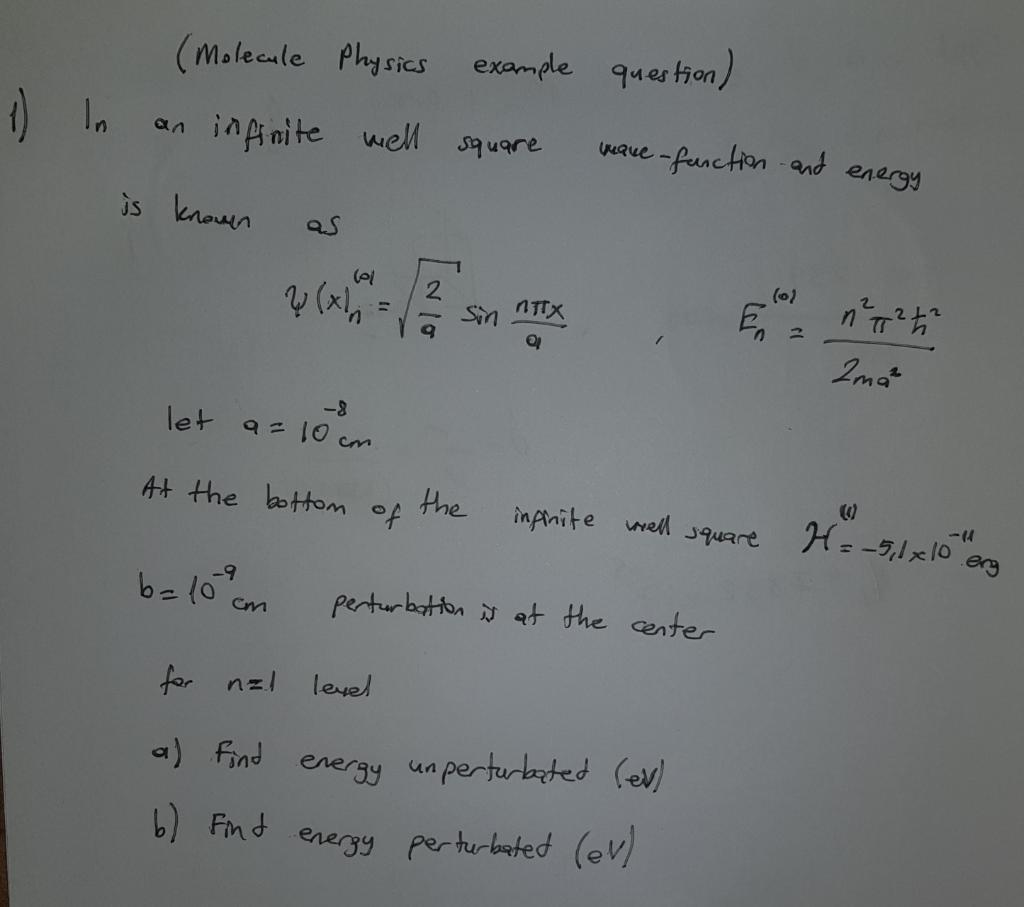 (Molecule Physics example question)
1) In an infinite well square wave-function and energy
is known as
ψ(x)ₙ⁽⁰⁾ = √(2/a) sin nπx/a , Eₙ⁽⁰⁾ = n²π²ħ²/2ma²
let a = 10⁻⁸ cm
At the bottom of the infinite well square H⁽¹⁾ = -5,1 x 10⁻¹¹ erg
b = 10⁻⁹ cm perturbation is at the center
for n=1 level
a) Find energy unperturbated (eV)
b) Find energy perturbated (eV)